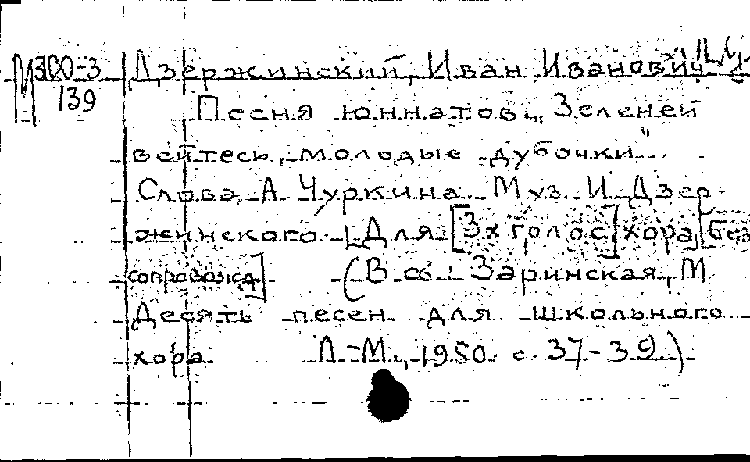 М300-3
139
Дзержинский, Иван Иванович
Песня юннатов „Зеленей
вейтесь, молодые дубочки"
Слова А Чуркина Муз И Дзер
жинского Для [3х голос] хора [без
сопровожд]  (В сб: Заринская, М
Десять песен для школьного
хора  Л-М, 1950 с. 37-39)